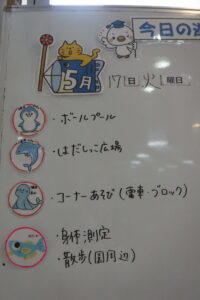 今日の遊
5月 17日 火曜日
・ボールプール
・はだしっこ広場
・コーナーあそび(電車・ブロック)
・身体測定
・散歩(園周辺)